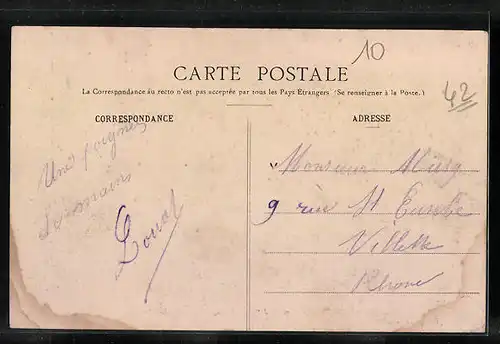 10
42
CARTE POSTALE
La Correspondance au recto n'est pas acceptée par tous les Pays Étrangers (Se renseigner à la Poste.)
CORRESPONDANCE
ADRESSE
Une poignée
de mains
Monsieur
9 rue St
Villette
Rhone